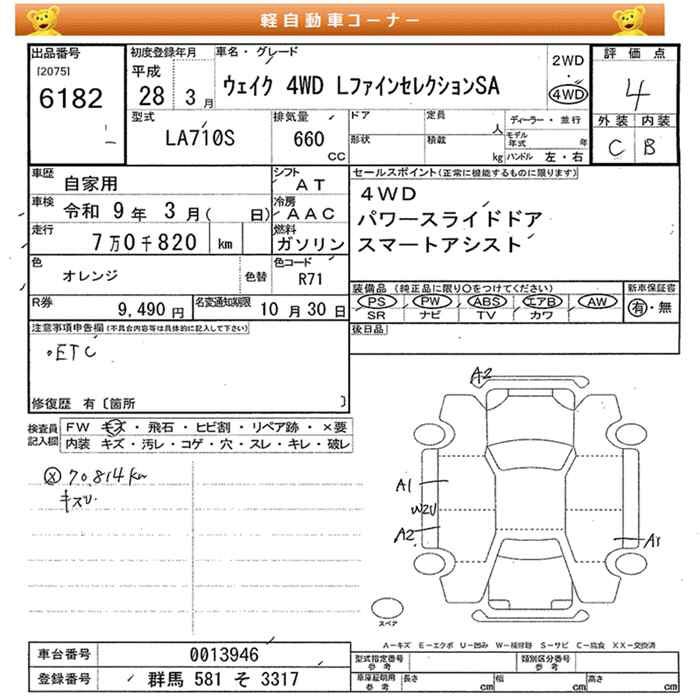 軽自動車コーナー
出品番号
[2075]
6182
初度登録年月
平成
28 3月
車名・グレード
ウェイク 4WD LファインセレクションSA
2WD
・
4WD
評価点
4
外装 内装
C B
型式
LA710S
排気量
660
CC
ドア
形状
定員
人
積載
kg
ディーラー・並行
モデル年式 年
ハンドル 左・右
車歴
自家用
シフト
AT
車検
令和 9年 3月( 日)
冷房
AAC
走行
7万0千820 km
燃料
ガソリン
色
オレンジ
色替
色コード
R71
R券
9,490円
名変通知期限
10月30日
セールスポイント(正常に機能するものに限ります)
4WD
パワースライドドア
スマートアシスト
装備品 (純正品に限り〇をつけてください)
PS PW ABS エアB AW
SR ナビ TV カワ
新車保証書
有・無
後日品
注意事項申告欄(不具合内容等は具体的に記入して下さい)
・ETC
修復歴 有〔箇所 〕
検査員記入欄
FW キズ・飛石・ヒビ割・リペア跡・×要
内装 キズ・汚レ・コゲ・穴・スレ・キレ・破レ
ⓧ 70,814km
キズU.
A2
A1
W2U
A2
A1
スペア
A-キズ E-エクボ U-凹み W-補修跡 S-サビ C-腐食 XX-交換済
車台番号
0013946
登録番号
群馬 581 そ 3317
型式指定番号
参考
類別区分番号
参考
車庫証明用
参考
長さ cm
幅 cm
高さ cm